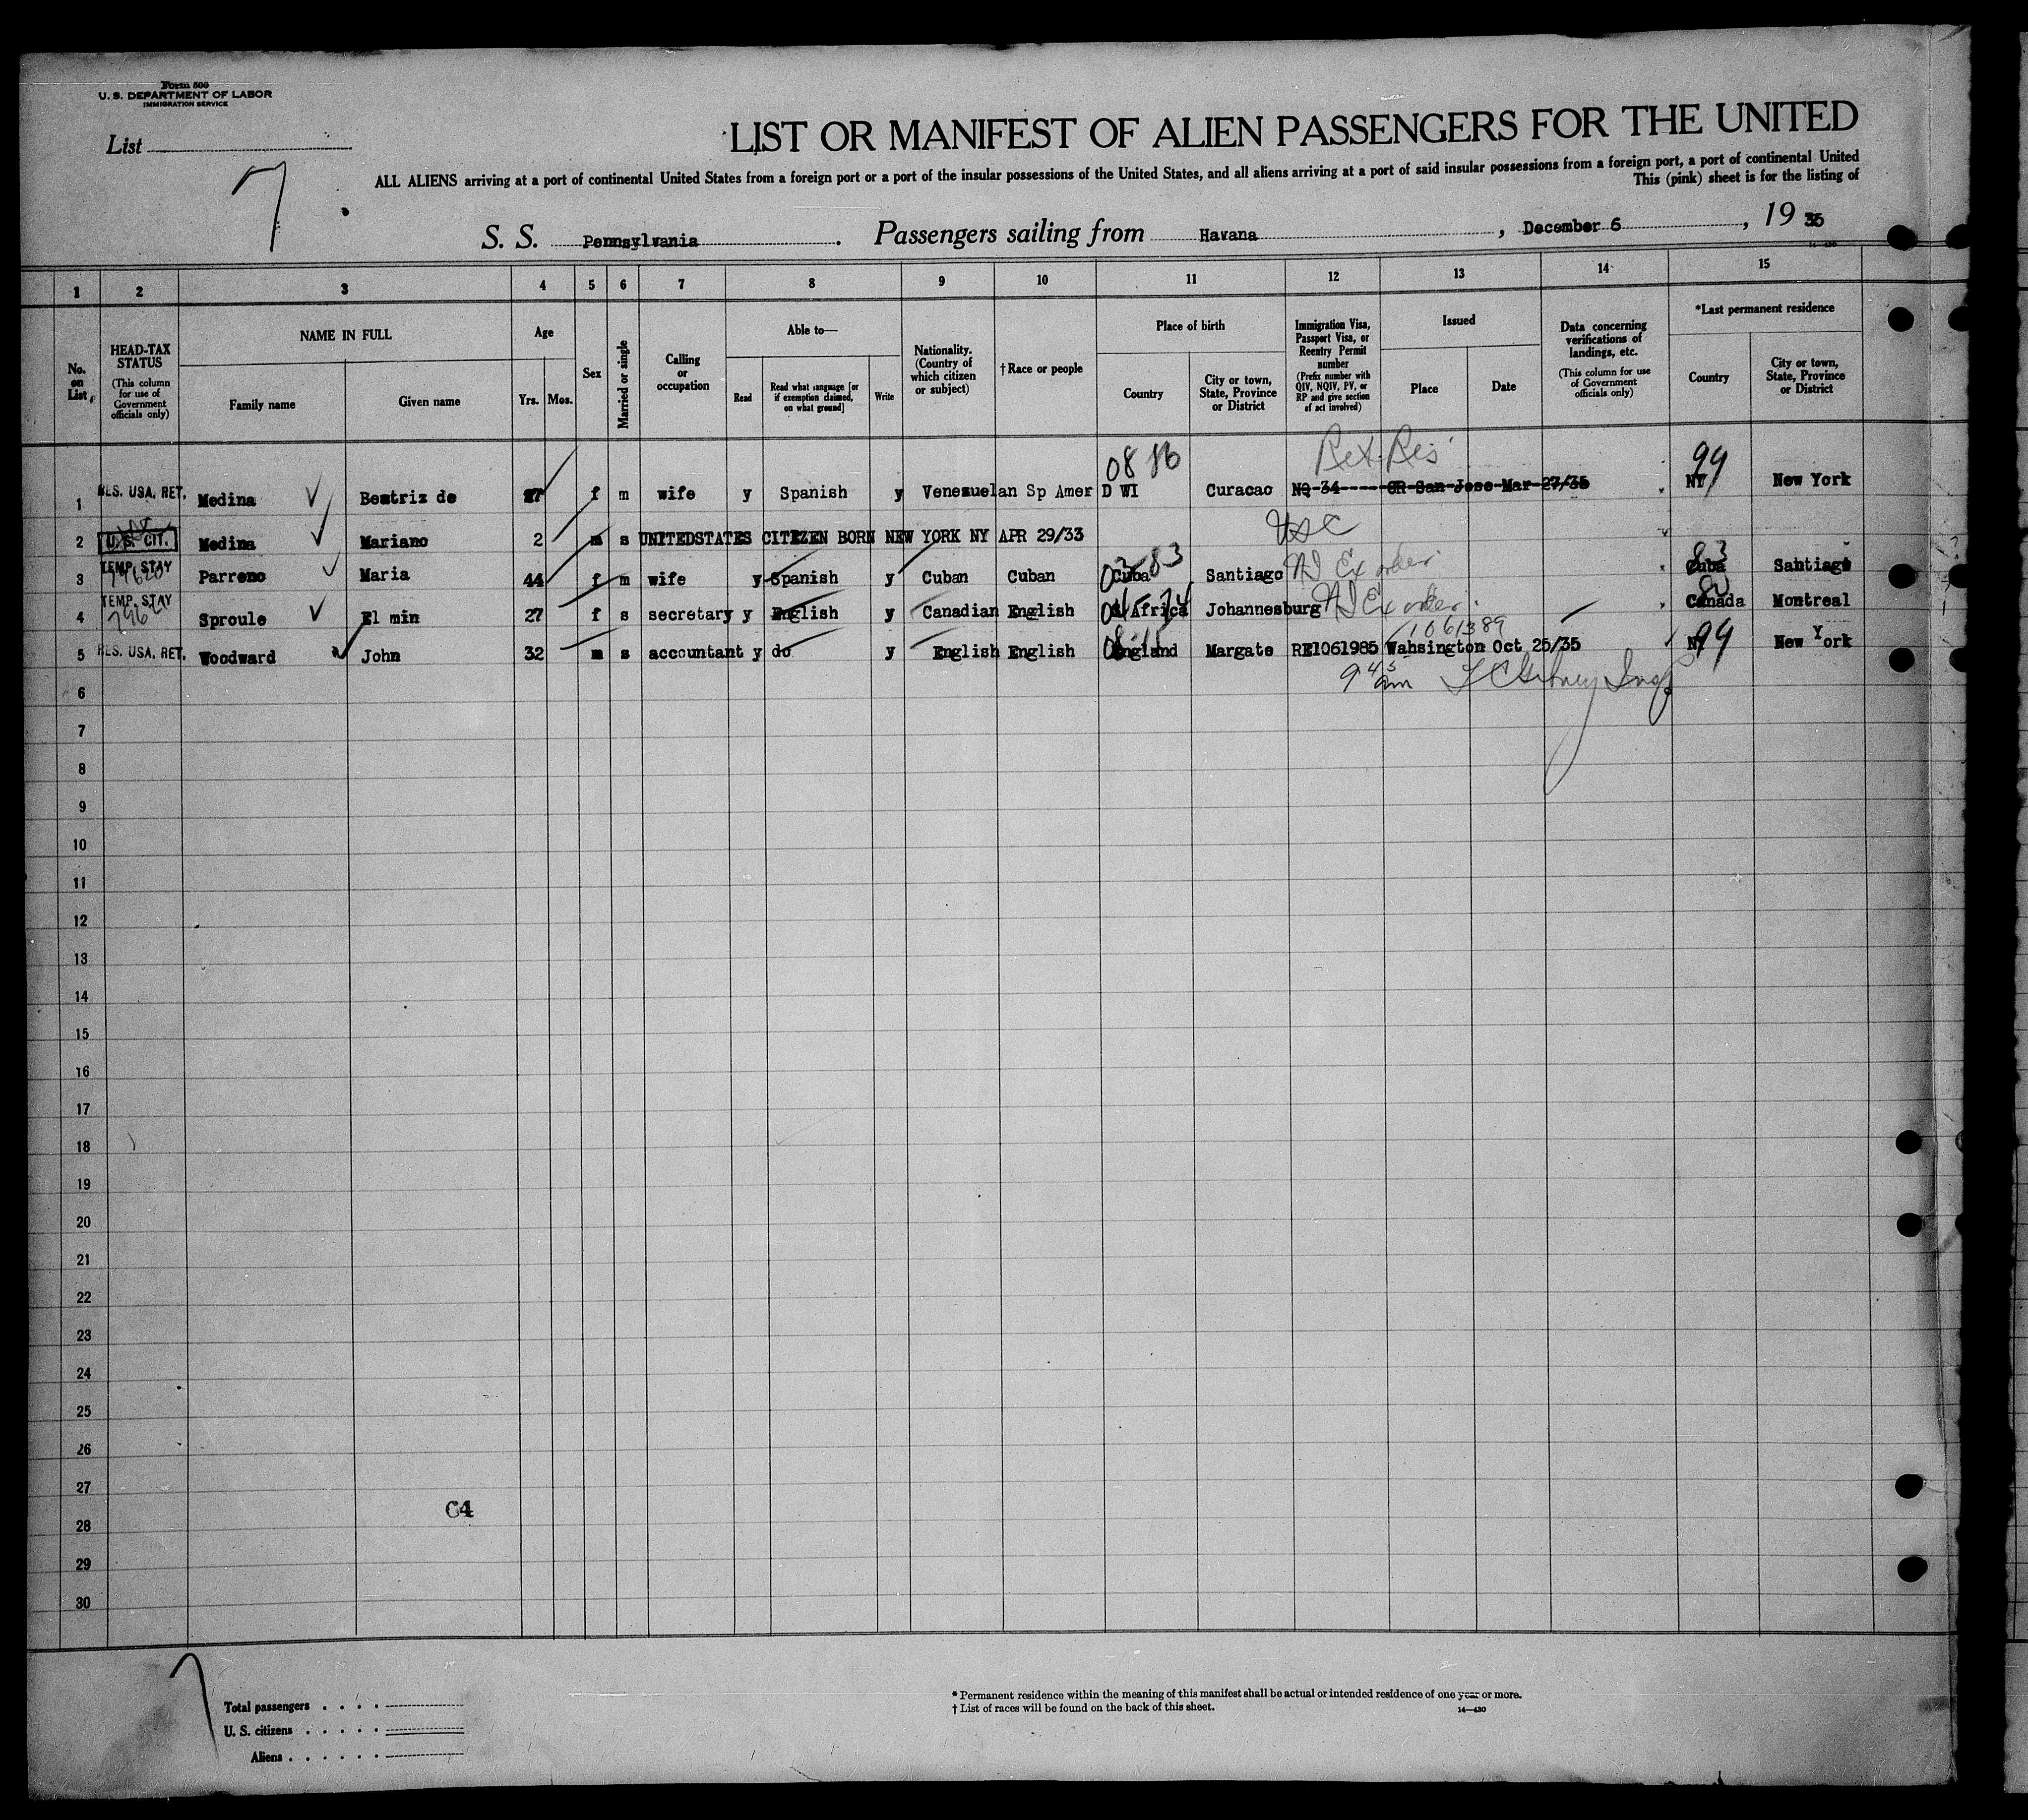 Form 500
U. S. DEPARTMENT OF LABOR
IMMIGRATION SERVICE
List
7
LIST OR MANIFEST OF ALIEN PASSENGERS FOR THE UNITED
ALL ALIENS arriving at a port of continental United States from a foreign port or a port of the insular possessions of the United States, and all aliens arriving at a port of said insular possessions from a foreign port, a port of continental United
This (pink) sheet is for the listing of
S. S. Pennsylvania. Passengers sailing from Havana, December 6, 19 35
1 2 3 4 5 6 7 8 9 10 11 12 13 14 15
No. on List
HEAD-TAX STATUS (This column for use of Government officials only)
NAME IN FULL
Family name
Given name
Age
Yrs. Mos.
Sex
Married or single
Calling or occupation
Able to—
Read
Read what language [or if exemption claimed, on what ground]
Write
Nationality. (Country of which citizen or subject)
†Race or people
Place of birth
Country
City or town, State, Province or District
Immigration Visa, Passport Visa, or Reentry Permit number (Prefix number with QIV, NQIV, PV, or RP and give section of act involved)
Issued
Place
Date
Data concerning verifications of landings, etc. (This column for use of Government officials only)
*Last permanent residence
Country
City or town, State, Province or District
08 86 Ret Res 99
1 RES. USA, RET. Medina Beatriz de 27 f m wife y Spanish y Venezuelan Sp Amer D WI Curacao NQ-34-----OR San Jose Mar 27/35 NY New York
2 U. S. CIT. Medina Mariano 2 m s UNITEDSTATES CITIZEN BORN NEW YORK NY APR 29/33 USC
3 TEMP. STAY Parreno Maria 44 f m wife y Spanish y Cuban Cuban Cuba 83 Santiago Ex order 83 Cuba Santiago
4 TEMP. STAY Sproule El min 27 f s secretary y English y Canadian English S Africa Johannesburg Ex order Canada Montreal
1061389
5 RES. USA, RET. Woodward John 32 m s accountant y do y English English England Margate RE1061985 Wahsington Oct 25/35 NY 99 New York
6 9 45 am
7
8
9
10
11
12
13
14
15
16
17
18
19
20
21
22
23
24
25
26
27
64
28
29
30
7
Total passengers
U. S. citizens
Aliens
* Permanent residence within the meaning of this manifest shall be actual or intended residence of one year or more.
† List of races will be found on the back of this sheet.
14—430